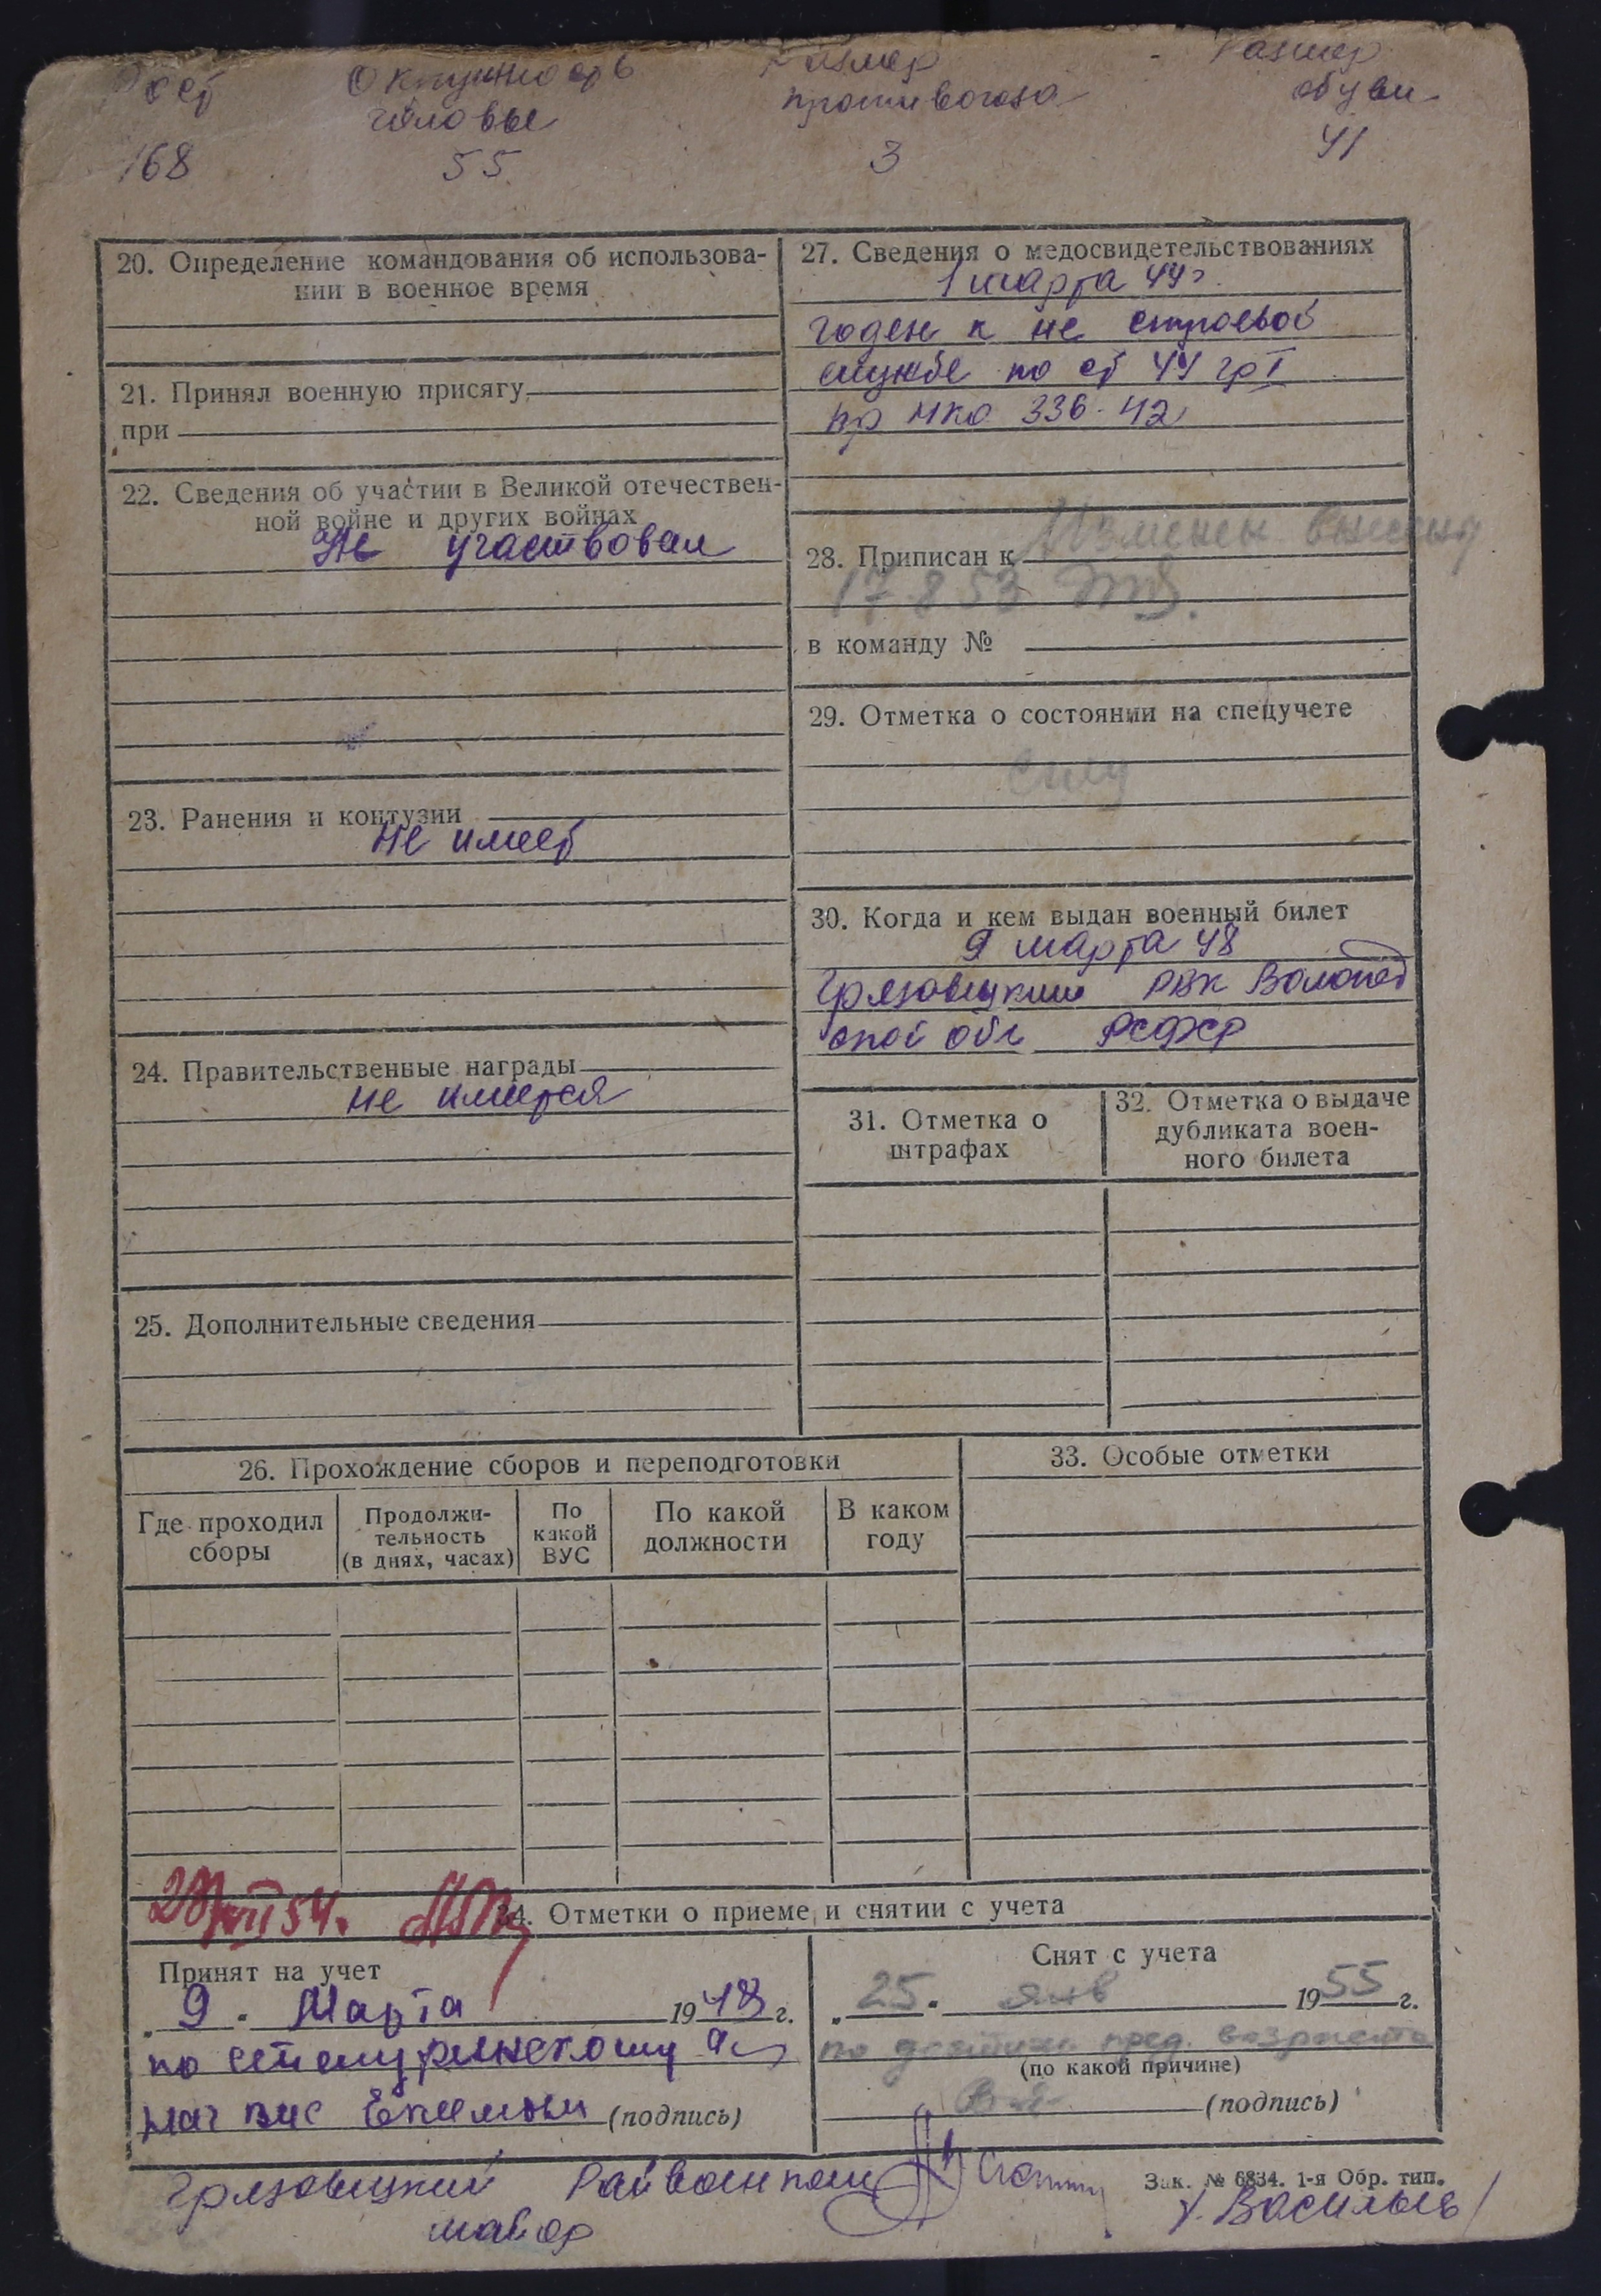 Рост Окружность Размер Размер
головы противогаза обуви
168 55 3 41
20. Определение командования об использова-
нии в военное время
21. Принял военную присягу
при
22. Сведения об участии в Великой отечествен-
ной войне и других войнах
Не участвовал
23. Ранения и контузии
не имеет
24. Правительственные награды
не имеется
25. Дополнительные сведения
27. Сведения о медосвидетельствованиях
1 марта 44 г.
годен к не строевой
службе по ст 44 гр I
пр НКО 336-42
28. Приписан к
17.8.53
в команду №
29. Отметка о состоянии на спецучете
30. Когда и кем выдан военный билет
9 марта 48
Грязовецким РВК Вологод
ской обл РСФСР
31. Отметка о
штрафах
32. Отметка о выдаче
дубликата воен-
ного билета
26. Прохождение сборов и переподготовки
Где проходил
сборы
Продолжи-
тельность
(в днях, часах)
По
какой
ВУС
По какой
должности
В каком
году
33. Особые отметки
54.
34. Отметки о приеме и снятии с учета
Принят на учет
„ 9 " Марта 1948 г.
по
(подпись)
Снят с учета
„ 25 " янв 1955 г.
по достиж. пред. возраста
(по какой причине)
(подпись)
Грязовецкий Райвоенком
майор
Зак. № 6834. 1-я Обр. тип.
Васильев/